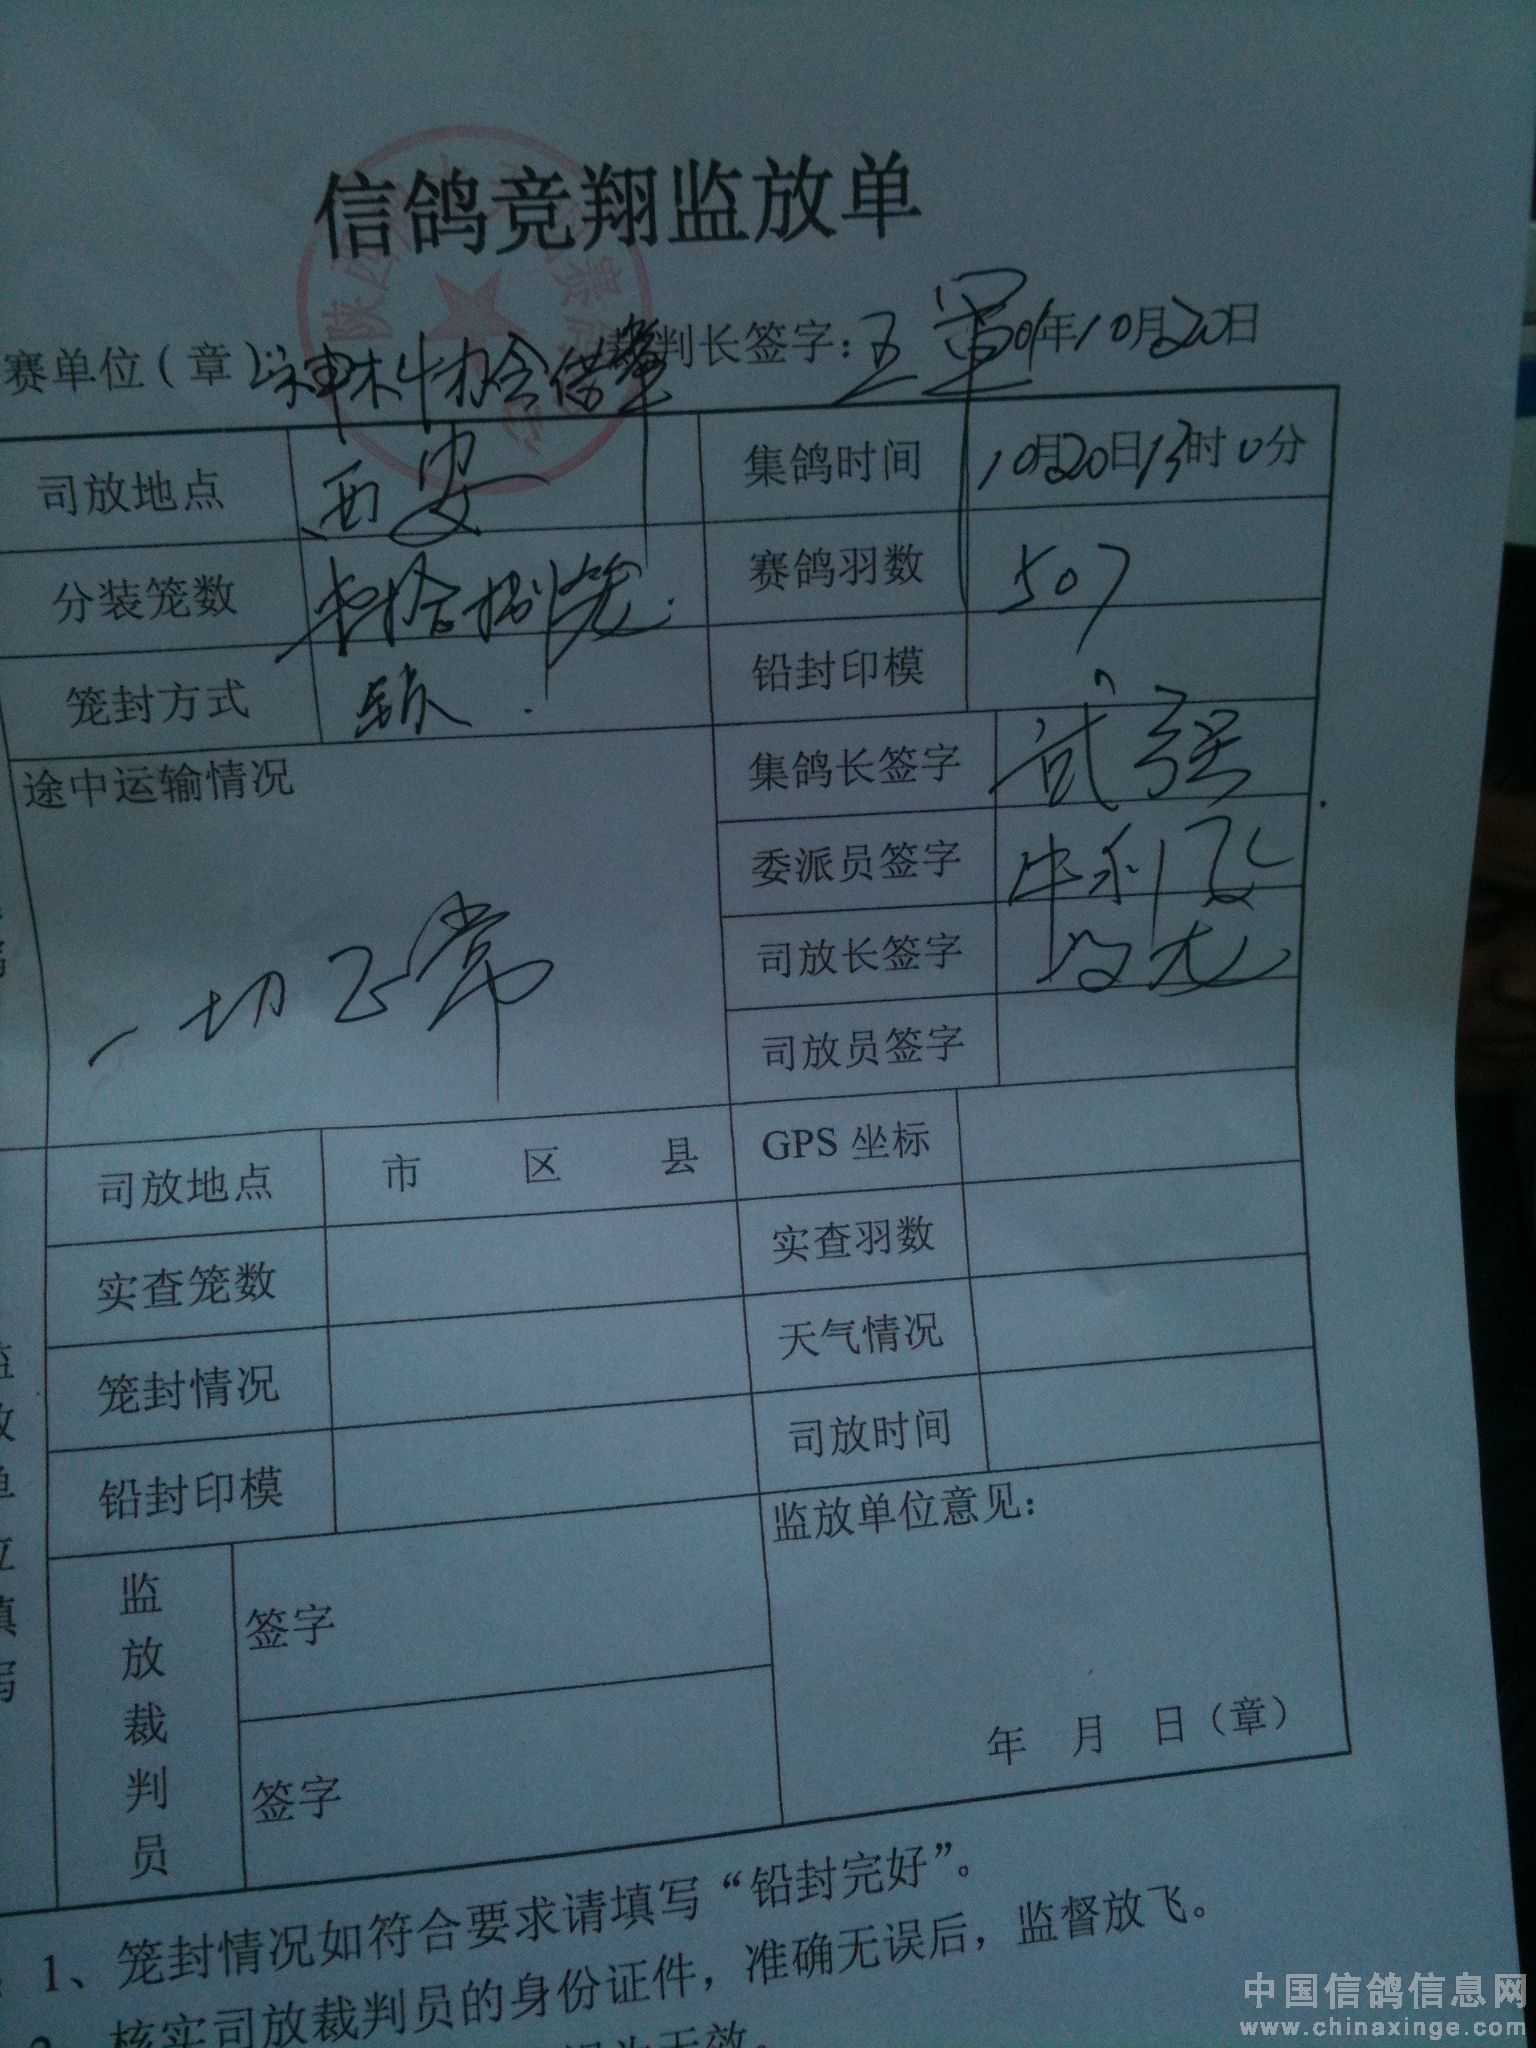 信鸽竞翔监放单
赛单位（章） 裁判长签字：王军 年10月20日
司放地点 西安 集鸽时间 10月20日13时0分
分装笼数 壹拾捌笼 赛鸽羽数 507
笼封方式 锁 铅封印模
途中运输情况 一切正常
集鸽长签字 武强
委派员签字
司放长签字
司放员签字
司放地点 市 区 县 GPS 坐标
实查笼数 实查羽数
笼封情况 天气情况
铅封印模 司放时间
监放裁判员 签字
签字
监放单位意见：
年 月 日（章）
1、笼封情况如符合要求请填写“铅封完好”。
核实司放裁判员的身份证件，准确无误后，监督放飞。
中国信鸽信息网
www.chinaxinge.com